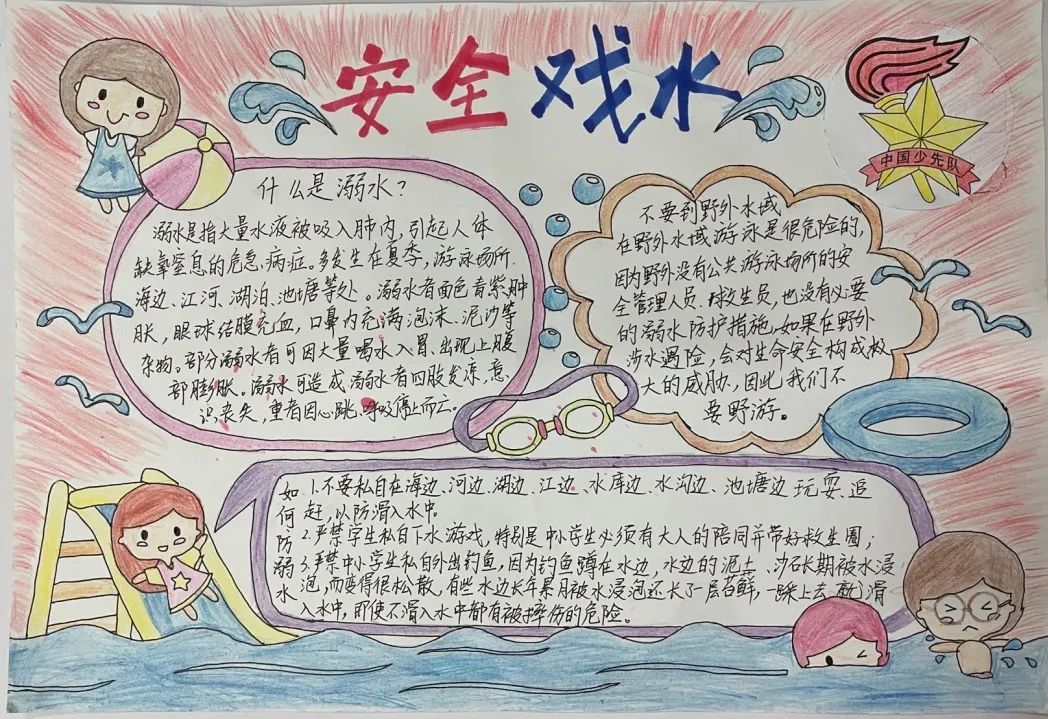 安全戏水
中国少先队
什么是溺水？
溺水是指大量水液被吸入肺内，引起人体
缺氧窒息的危急、病症。多发生在夏季，游泳场所、
海边、江河、湖泊、池塘等处。溺水者面色青紫肿
胀，眼球结膜充血，口鼻内充满泡沫、泥沙等
杂物。部分溺水者可因大量喝水入胃、出现上腹
部膨胀。溺水可造成溺水者四肢发凉，意
识丧失，重者因心跳、呼吸停止而亡。
不要到野外水域
在野外水域游泳是很危险的，
因为野外没有公共游泳场所的安
全管理人员、救生员，也没有必要
的溺水防护措施，如果在野外
涉水遇险，会对生命安全构成极
大的威胁，因此我们不
要野游。
如何防溺水
1.不要私自在海边、河边、湖边、江边、水库边、水沟边、池塘边玩耍、追
赶，以防滑入水中。
2.严禁学生私自下水游戏，特别是中小学生必须有大人的陪同并带好救生圈；
3.严禁中小学生私自外出钓鱼，因为钓鱼蹲在水边，水边的泥土、沙石长期被水浸
泡，而变得很松散，有些水边长年累月被水浸泡还长了一层苔鲜，一踩上去就滑
入水中，即使不滑入水中都有被摔伤的危险。